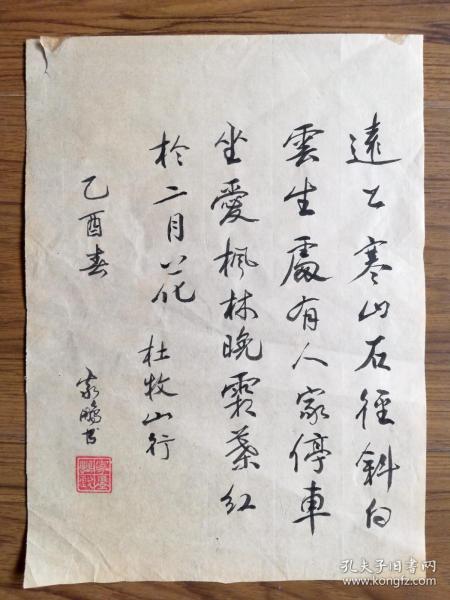 遠上寒山石徑斜白
雲生處有人家停車
坐愛楓林晚霜葉紅
於二月花 杜牧山行
乙酉春
家鵬书
孔夫子旧书网
www.kongfz.com